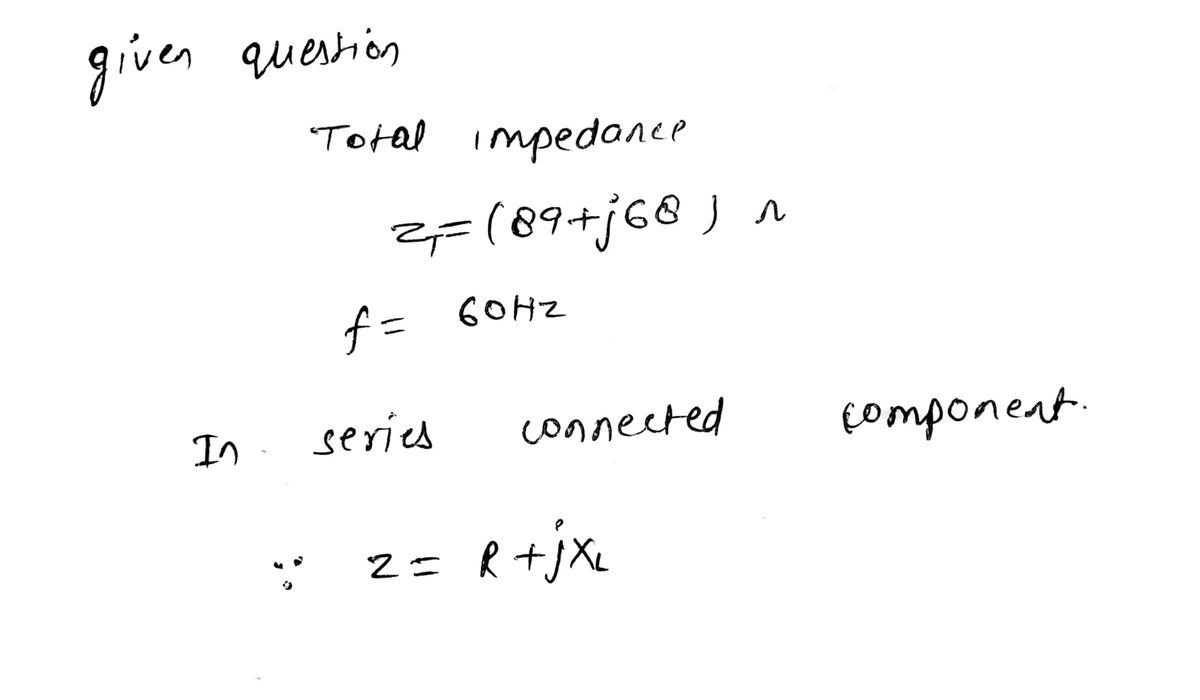 given question
Total impedance
Z_T = (89+j68) Ω
f = 60HZ
In series connected component.
∵ Z = R + jX_L